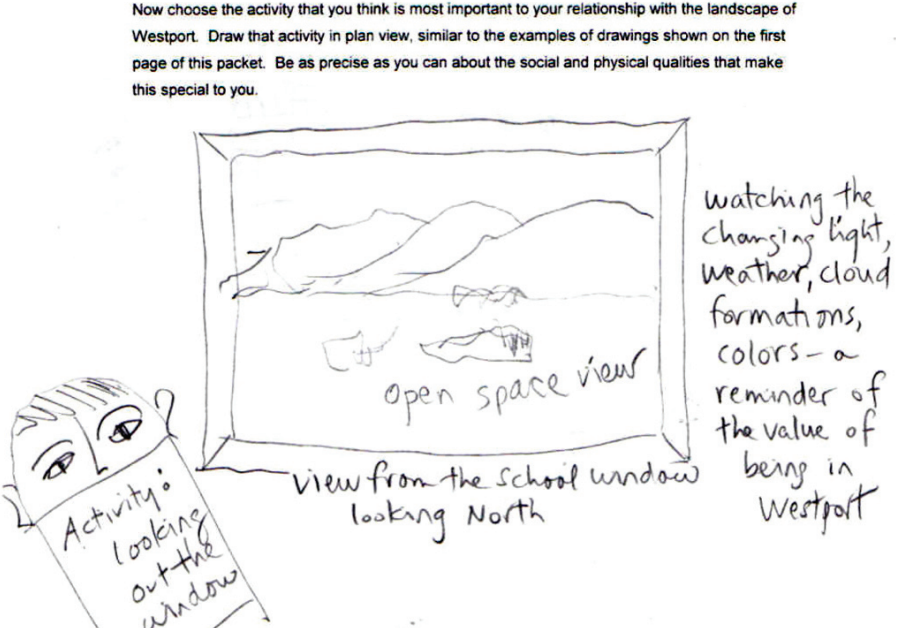 Now choose the activity that you think is most important to your relationship with the landscape of
Westport. Draw that activity in plan view, similar to the examples of drawings shown on the first
page of this packet. Be as precise as you can about the social and physical qualities that make
this special to you.
open space view
view from the school window
looking North
watching the
changing light,
weather, cloud
formations,
colors – a
reminder of
the value of
being in
Westport
Activity:
looking
out the
window